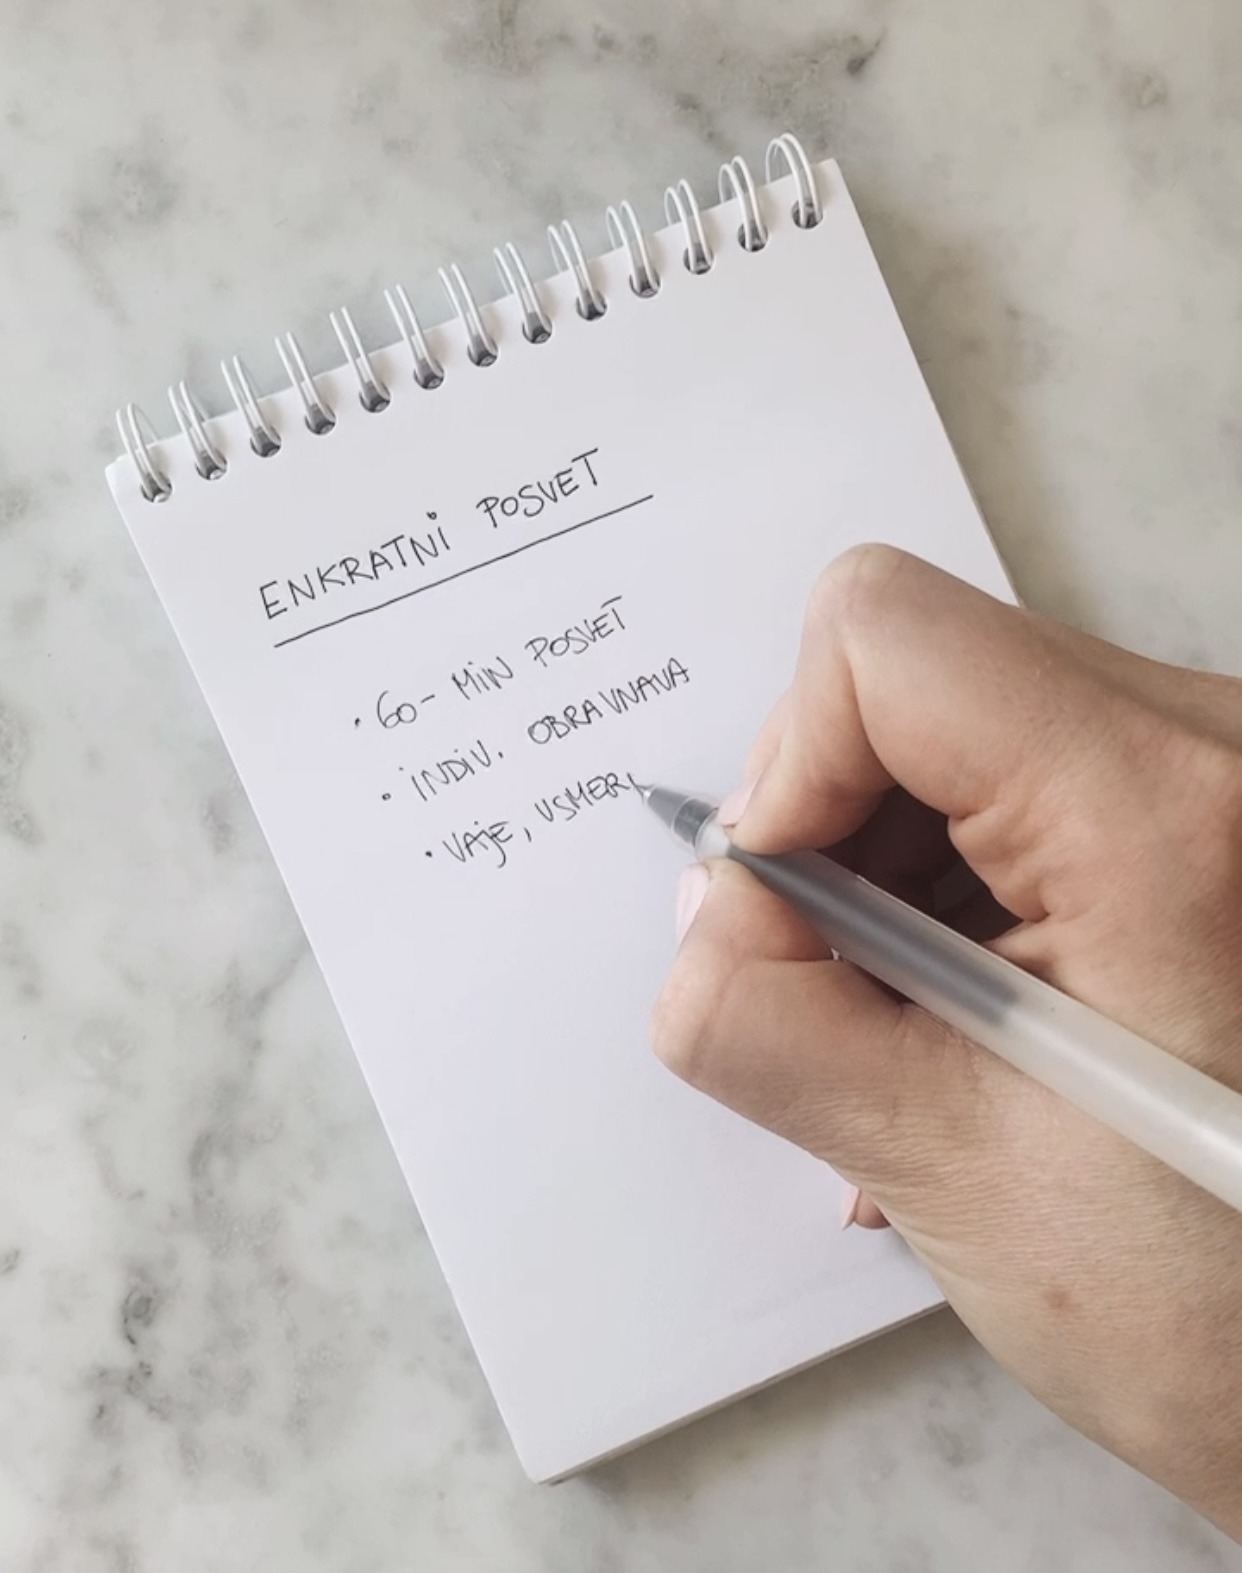 ENKRATNI POSVET
• 60-MIN POSVET
• INDIV. OBRAVNAVA
• VAJE, USMERI